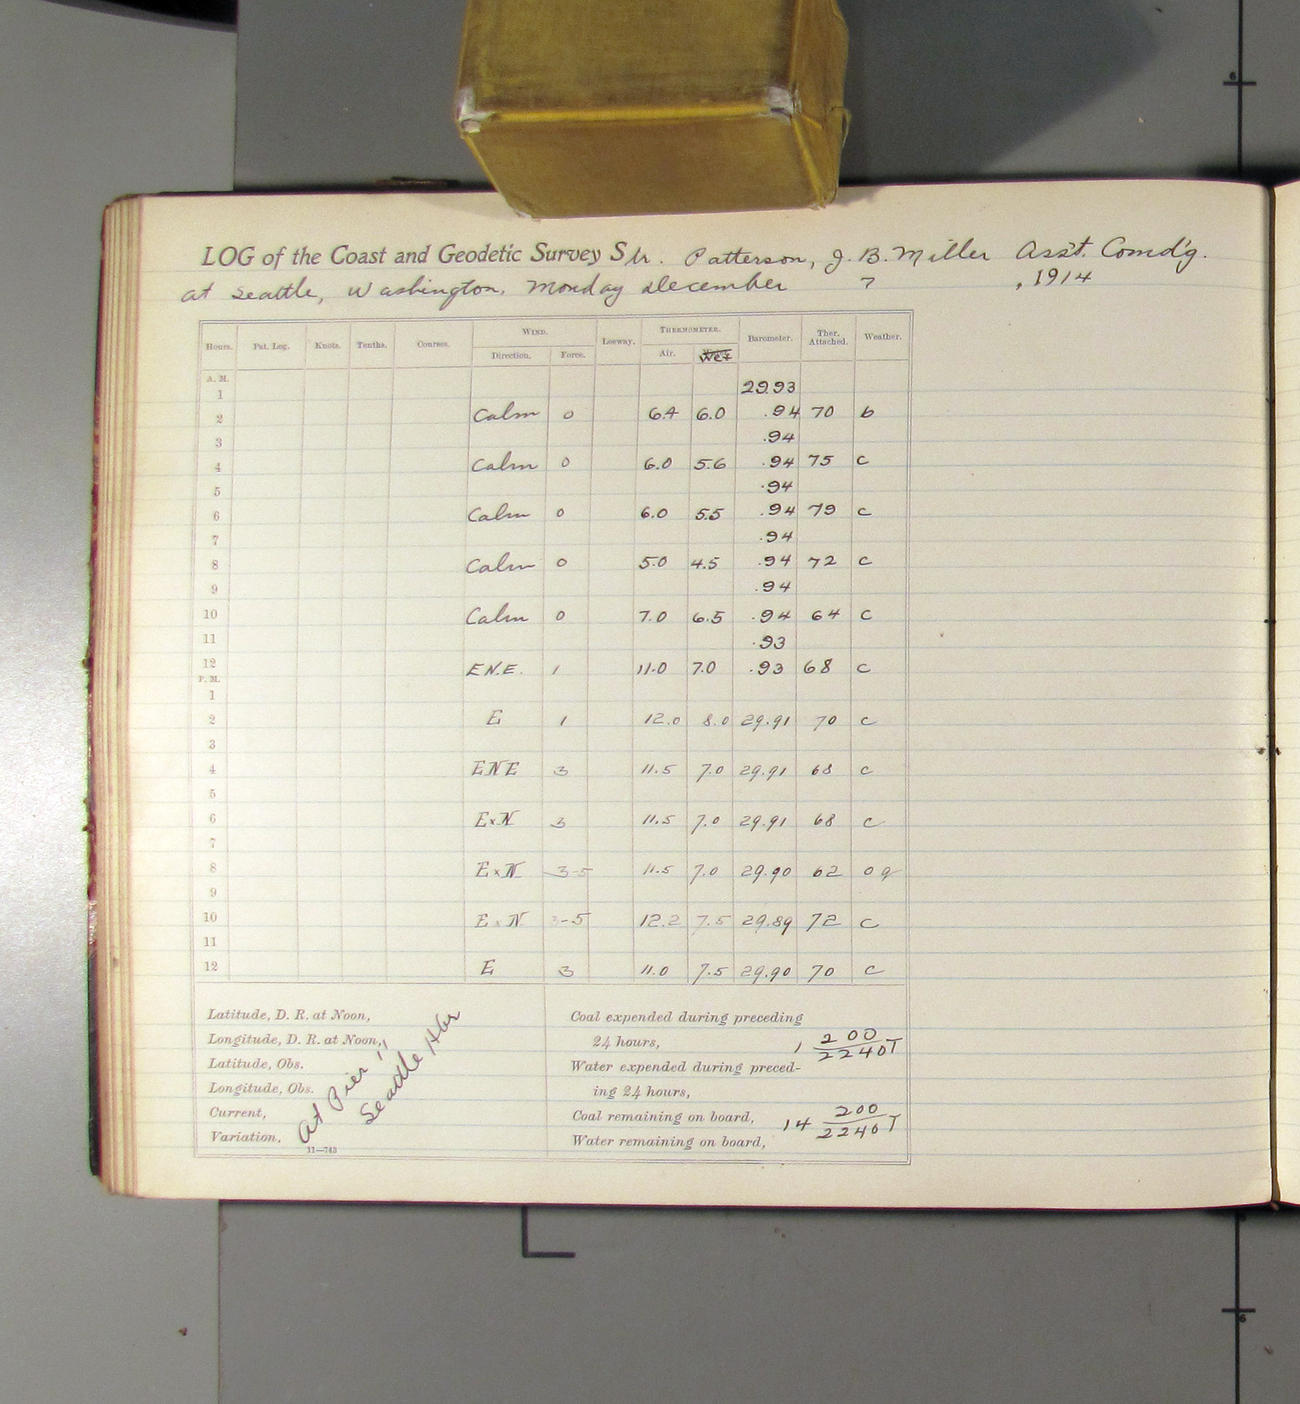 LOG of the Coast and Geodetic Survey Str. Patterson, J. B. Miller Ass't. Comd'g.
at Seattle, Washington. Monday December 7, 1914
WIND. THERMOMETER.
Hours. Pat. Log. Knots. Tenths. Courses. Direction. Force. Leeway. Air. Wet Barometer. Ther. Attached. Weather.
A. M.
1 29.93
2 Calm 0 6.4 6.0 .94 70 b
3 .94
4 Calm 0 6.0 5.6 .94 75 c
5 .94
6 Calm 0 6.0 5.5 .94 79 c
7 .94
8 Calm 0 5.0 4.5 .94 72 c
9 .94
10 Calm 0 7.0 6.5 .94 64 c
11 .93
12 E N.E. 1 11.0 7.0 .93 68 c
P. M.
1
2 E 1 12.0 8.0 29.91 70 c
3
4 ENE 3 11.5 7.0 29.91 68 c
5
6 ExN 3 11.5 7.0 29.91 68 c
7
8 ExN 3-5 11.5 7.0 29.90 62 o q
9
10 ExN 3-5 12.2 7.5 29.89 72 c
11
12 E 3 11.0 7.5 29.90 70 c
Latitude, D. R. at Noon,
Longitude, D. R. at Noon,
Latitude, Obs.
Longitude, Obs.
Current,
Variation,
At Pier 11
Seattle Hbr
11—743
Coal expended during preceding
24 hours, 1 200/2240 T
Water expended during preced-
ing 24 hours,
Coal remaining on board, 14 200/2240 T
Water remaining on board,
6
6